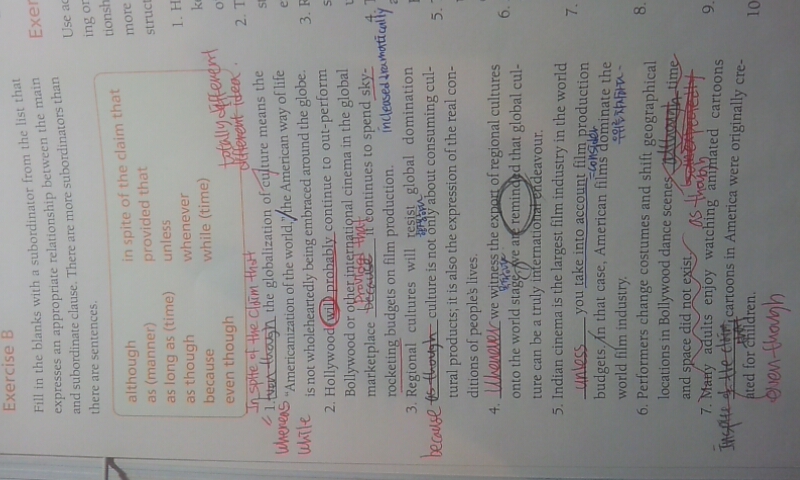 Exercise B
Fill in the blanks with a subordinator from the list that
expresses an appropriate relationship between the main
and subordinate clause. There are more subordinators than
there are sentences.
although in spite of the claim that
as (manner) provided that
as long as (time) unless
as though whenever
because while (time)
even though
totally different
different idea.
In spite of the claim that
1. even though the globalization of culture means the
whereas "Americanization of the world," the American way of life
while is not wholeheartedly being embraced around the globe.
2. Hollywood will probably continue to out-perform
Bollywood or other international cinema in the global
provided that
marketplace because it continues to spend sky-
rocketing budgets on film production.
increased dramatically
3. Regional cultures will resist global domination
because as though culture is not only about consuming cul-
tural products; it is also the expression of the real con-
ditions of people's lives.
4. Whenever we witness the export of regional cultures
onto the world stage, we are reminded that global cul-
ture can be a truly international endeavour.
5. Indian cinema is the largest film industry in the world
unless you take into account film production
=consider
budgets. In that case, American films dominate the
world film industry.
6. Performers change costumes and shift geographical
locations in Bollywood dance scenes although time
and space did not exist. as though
7. Many adults enjoy watching animated cartoons
In spite of the claim cartoons in America were originally cre-
ated for children.
even though
Exer
Use ac
ing or
tionsh
more
struct
1. H
2. T
3. R
4. T
5.
6.
7.
8.
9.
10